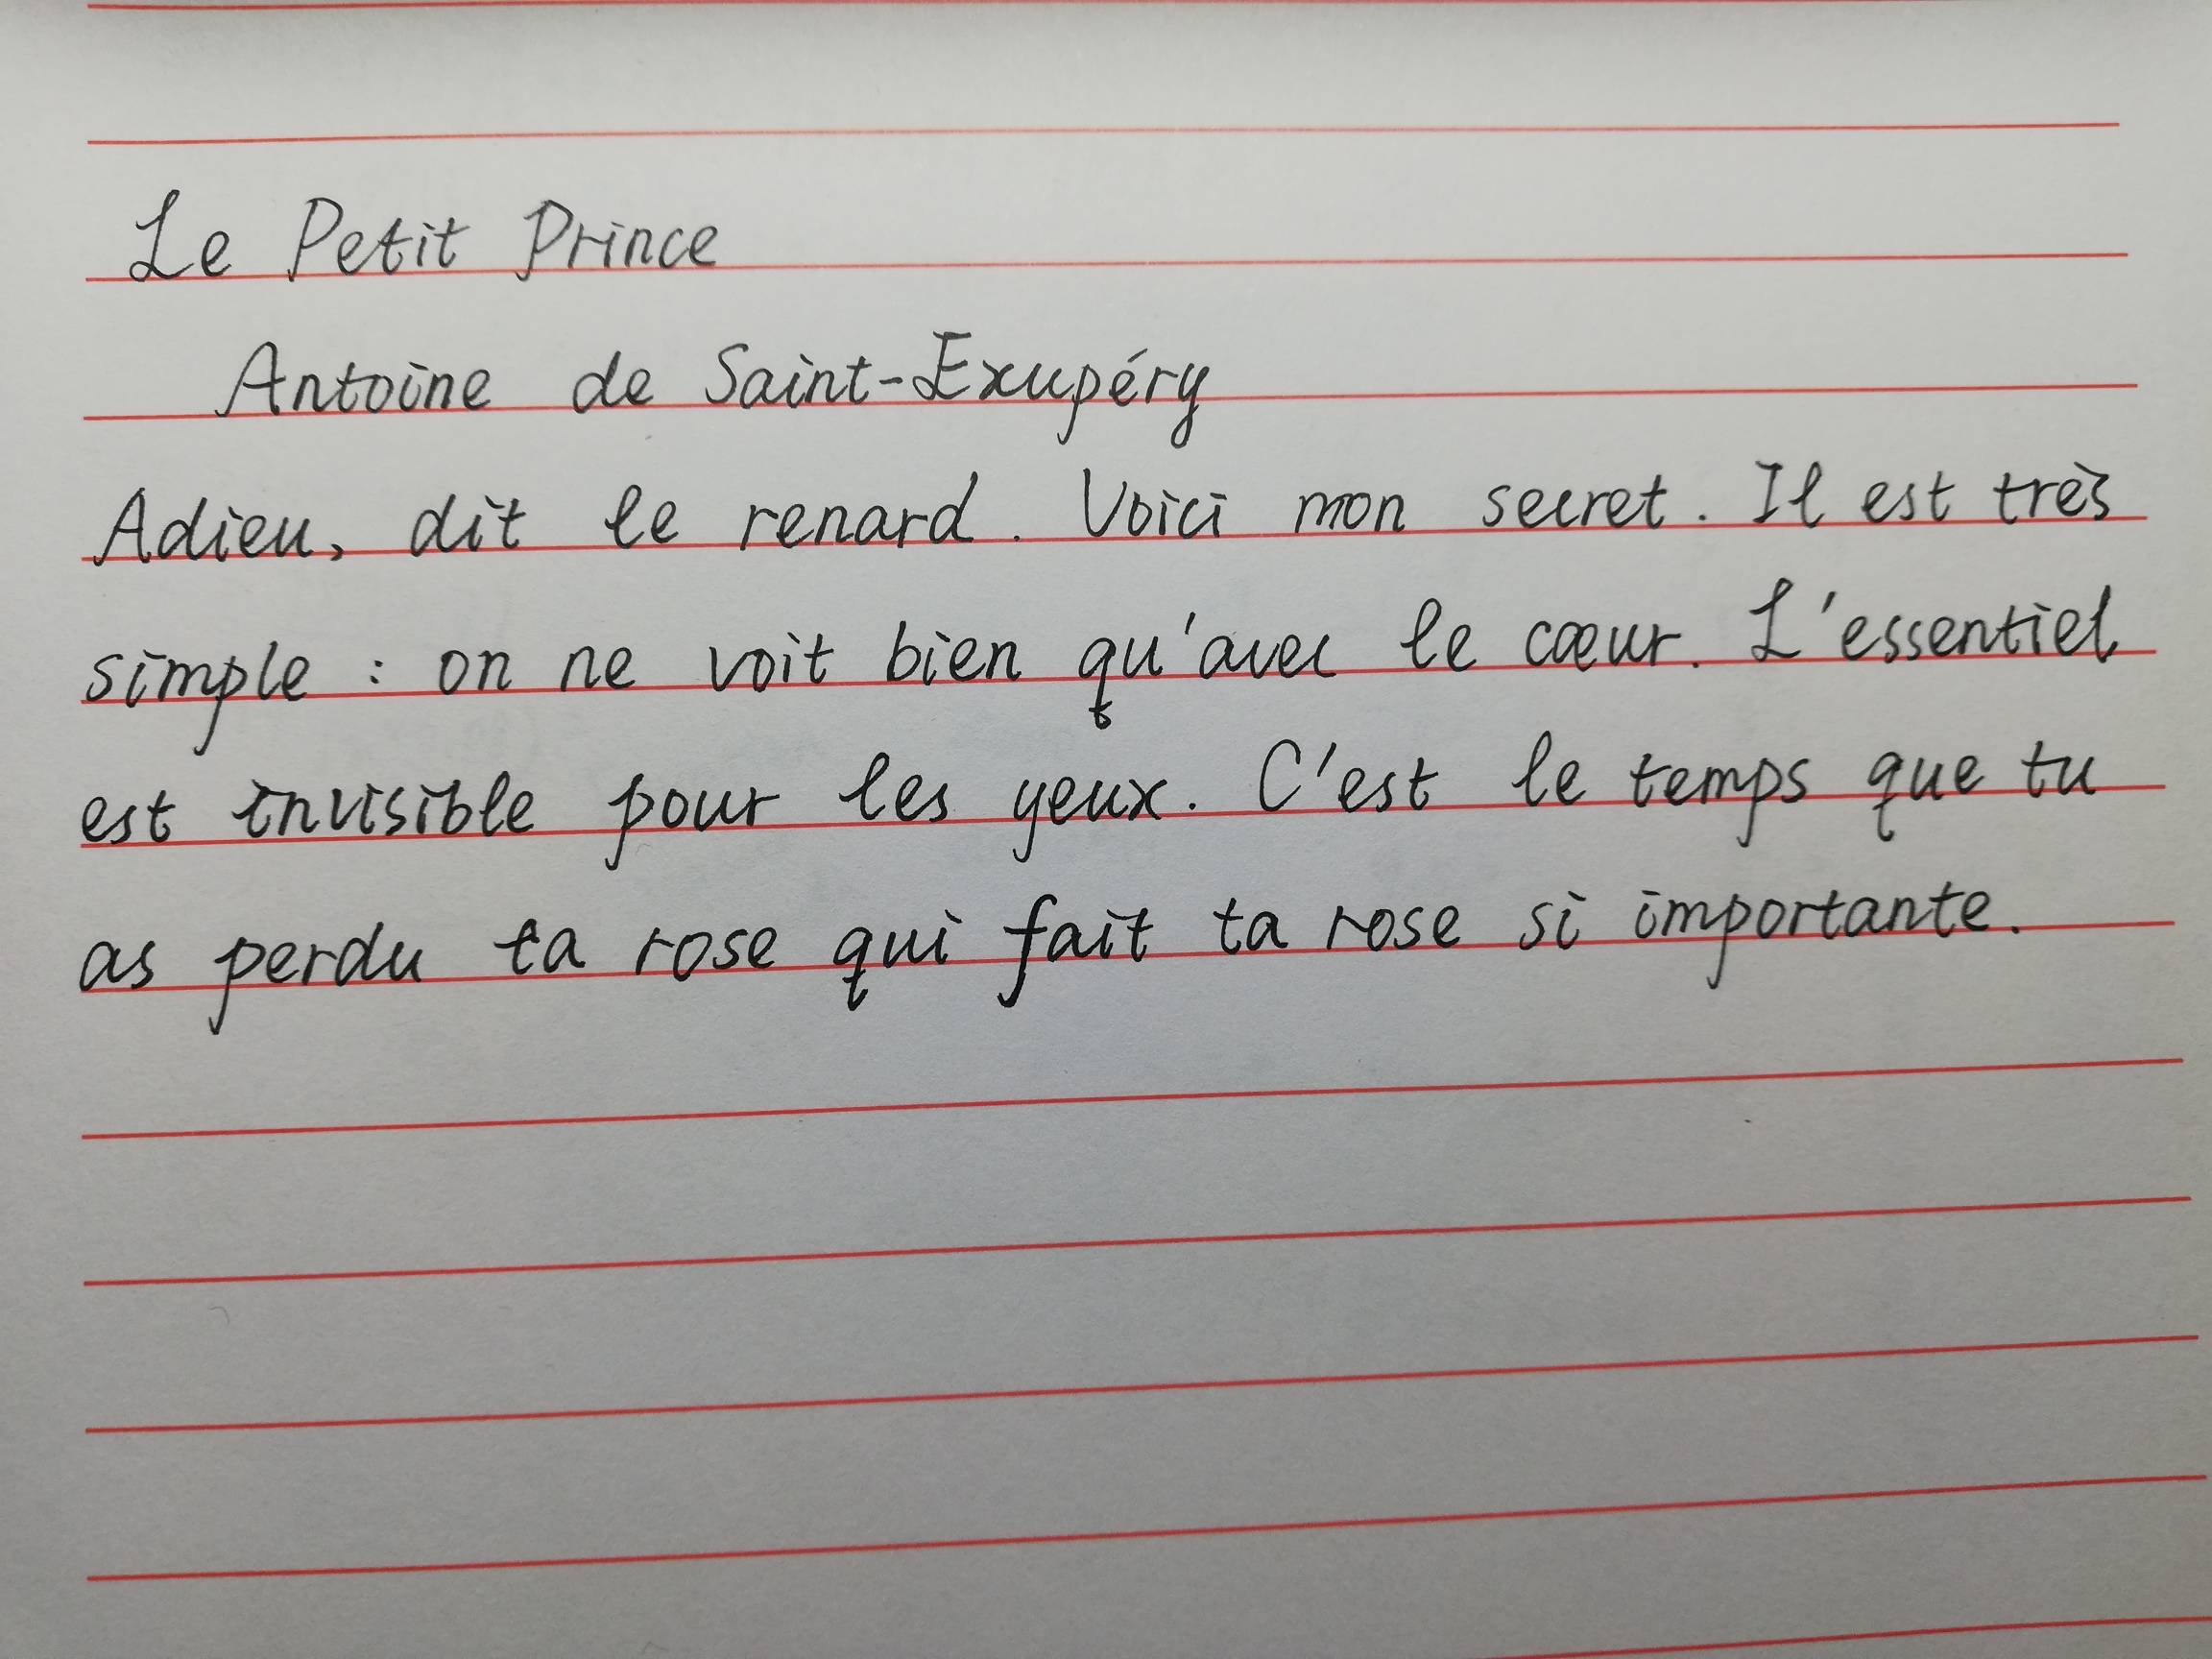 Le Petit Prince
Antoine de Saint-Exupéry
Adieu, dit le renard. Voici mon secret. Il est très
simple : on ne voit bien qu'avec le cœur. L'essentiel
est invisible pour les yeux. C'est le temps que tu
as perdu ta rose qui fait ta rose si importante.